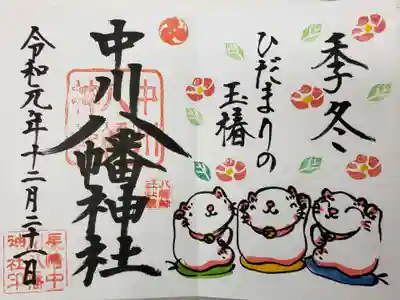 季冬
ひだまりの
玉椿
中川八幡神社
令和元年十二月二十八日